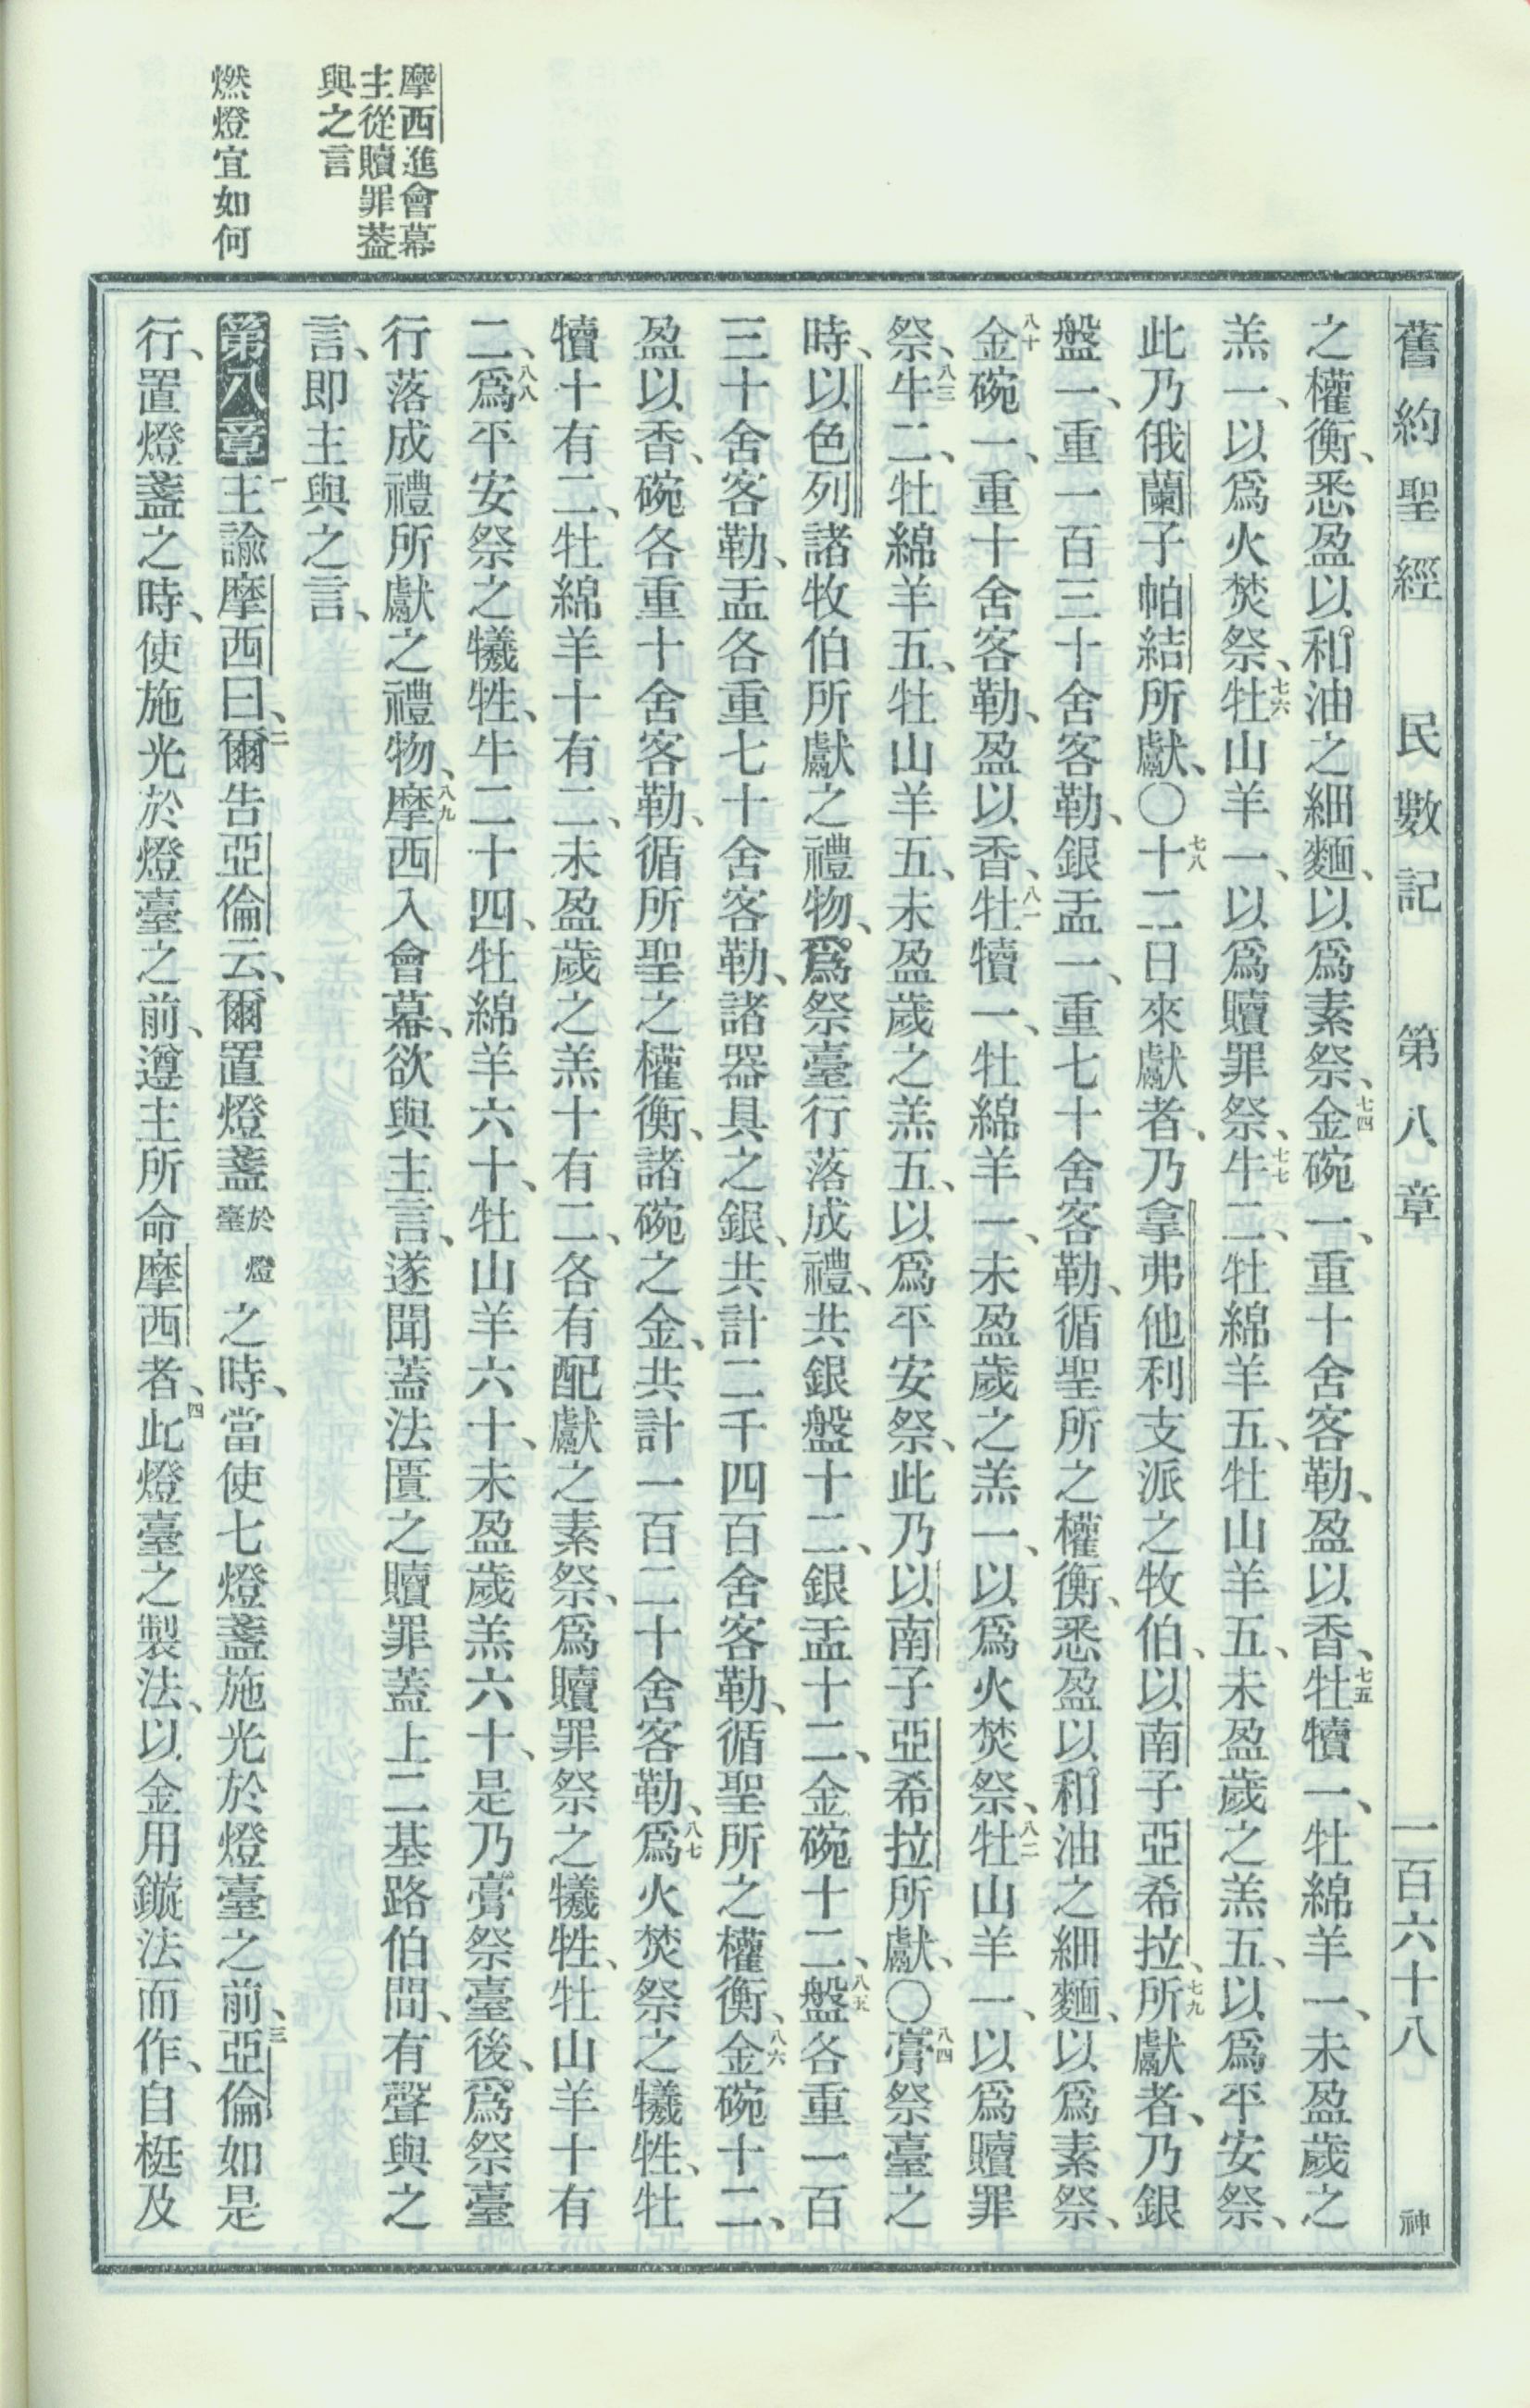 舊約聖經　民數記　第八章　一百六十八　神
之權衡、悉盈以和油之細麵、以爲素祭、七四金碗一、重十舍客勒、盈以香、七五牡犢一、牡綿羊一、未盈歲之
羔一、以爲火焚祭、七六牡山羊一、以爲贖罪祭、七七牛二、牡綿羊五、牡山羊五、未盈歲之羔五、以爲平安祭、
此乃俄蘭子帕結所獻、〇七八十二日來獻者、乃拿弗他利支派之牧伯、以南子亞希拉、七九所獻者、乃銀
盤一、重一百三十舍客勒、銀盂一、重七十舍客勒、循聖所之權衡、悉盈以和油之細麵、以爲素祭、
八十金碗一、重十舍客勒、盈以香、八一牡犢一、牡綿羊一、未盈歲之羔一、以爲火焚祭、八二牡山羊一、以爲贖罪
祭、八三牛二、牡綿羊五、牡山羊五、未盈歲之羔五、以爲平安祭、此乃以南子亞希拉所獻、〇八四膏祭臺之
時、以色列諸牧伯所獻之禮物、爲祭臺行落成禮、共銀盤十二、銀盂十二、金碗十二、八五盤各重一百
三十舍客勒、盂各重七十舍客勒、諸器具之銀、共計二千四百舍客勒、循聖所之權衡、八六金碗十二、
盈以香、碗各重十舍客勒、循所聖之權衡、諸碗之金、共計一百二十舍客勒、八七爲火焚祭之犧牲、牡
犢十有二、牡綿羊十有二、未盈歲之羔十有二、各有配獻之素祭、爲贖罪祭之犧牲、牡山羊十有
二、八八爲平安祭之犧牲、牛二十四、牡綿羊六十、牡山羊六十、未盈歲羔六十、是乃膏祭臺後、爲祭臺
行落成禮所獻之禮物、八九摩西入會幕、欲與主言、遂聞蓋法匱之贖罪蓋上二基路伯間、有聲與之
言、即主與之言、
第八章 一主諭摩西曰、二爾告亞倫云、爾置燈盞於燈臺之時、當使七燈盞施光於燈臺之前、三亞倫如是
行、置燈盞之時、使施光於燈臺之前、遵主所命摩西者、四此燈臺之製法、以金用鏇法而作、自梃及
摩西進會幕
主從贖罪蓋
與之言
燃燈宜如何